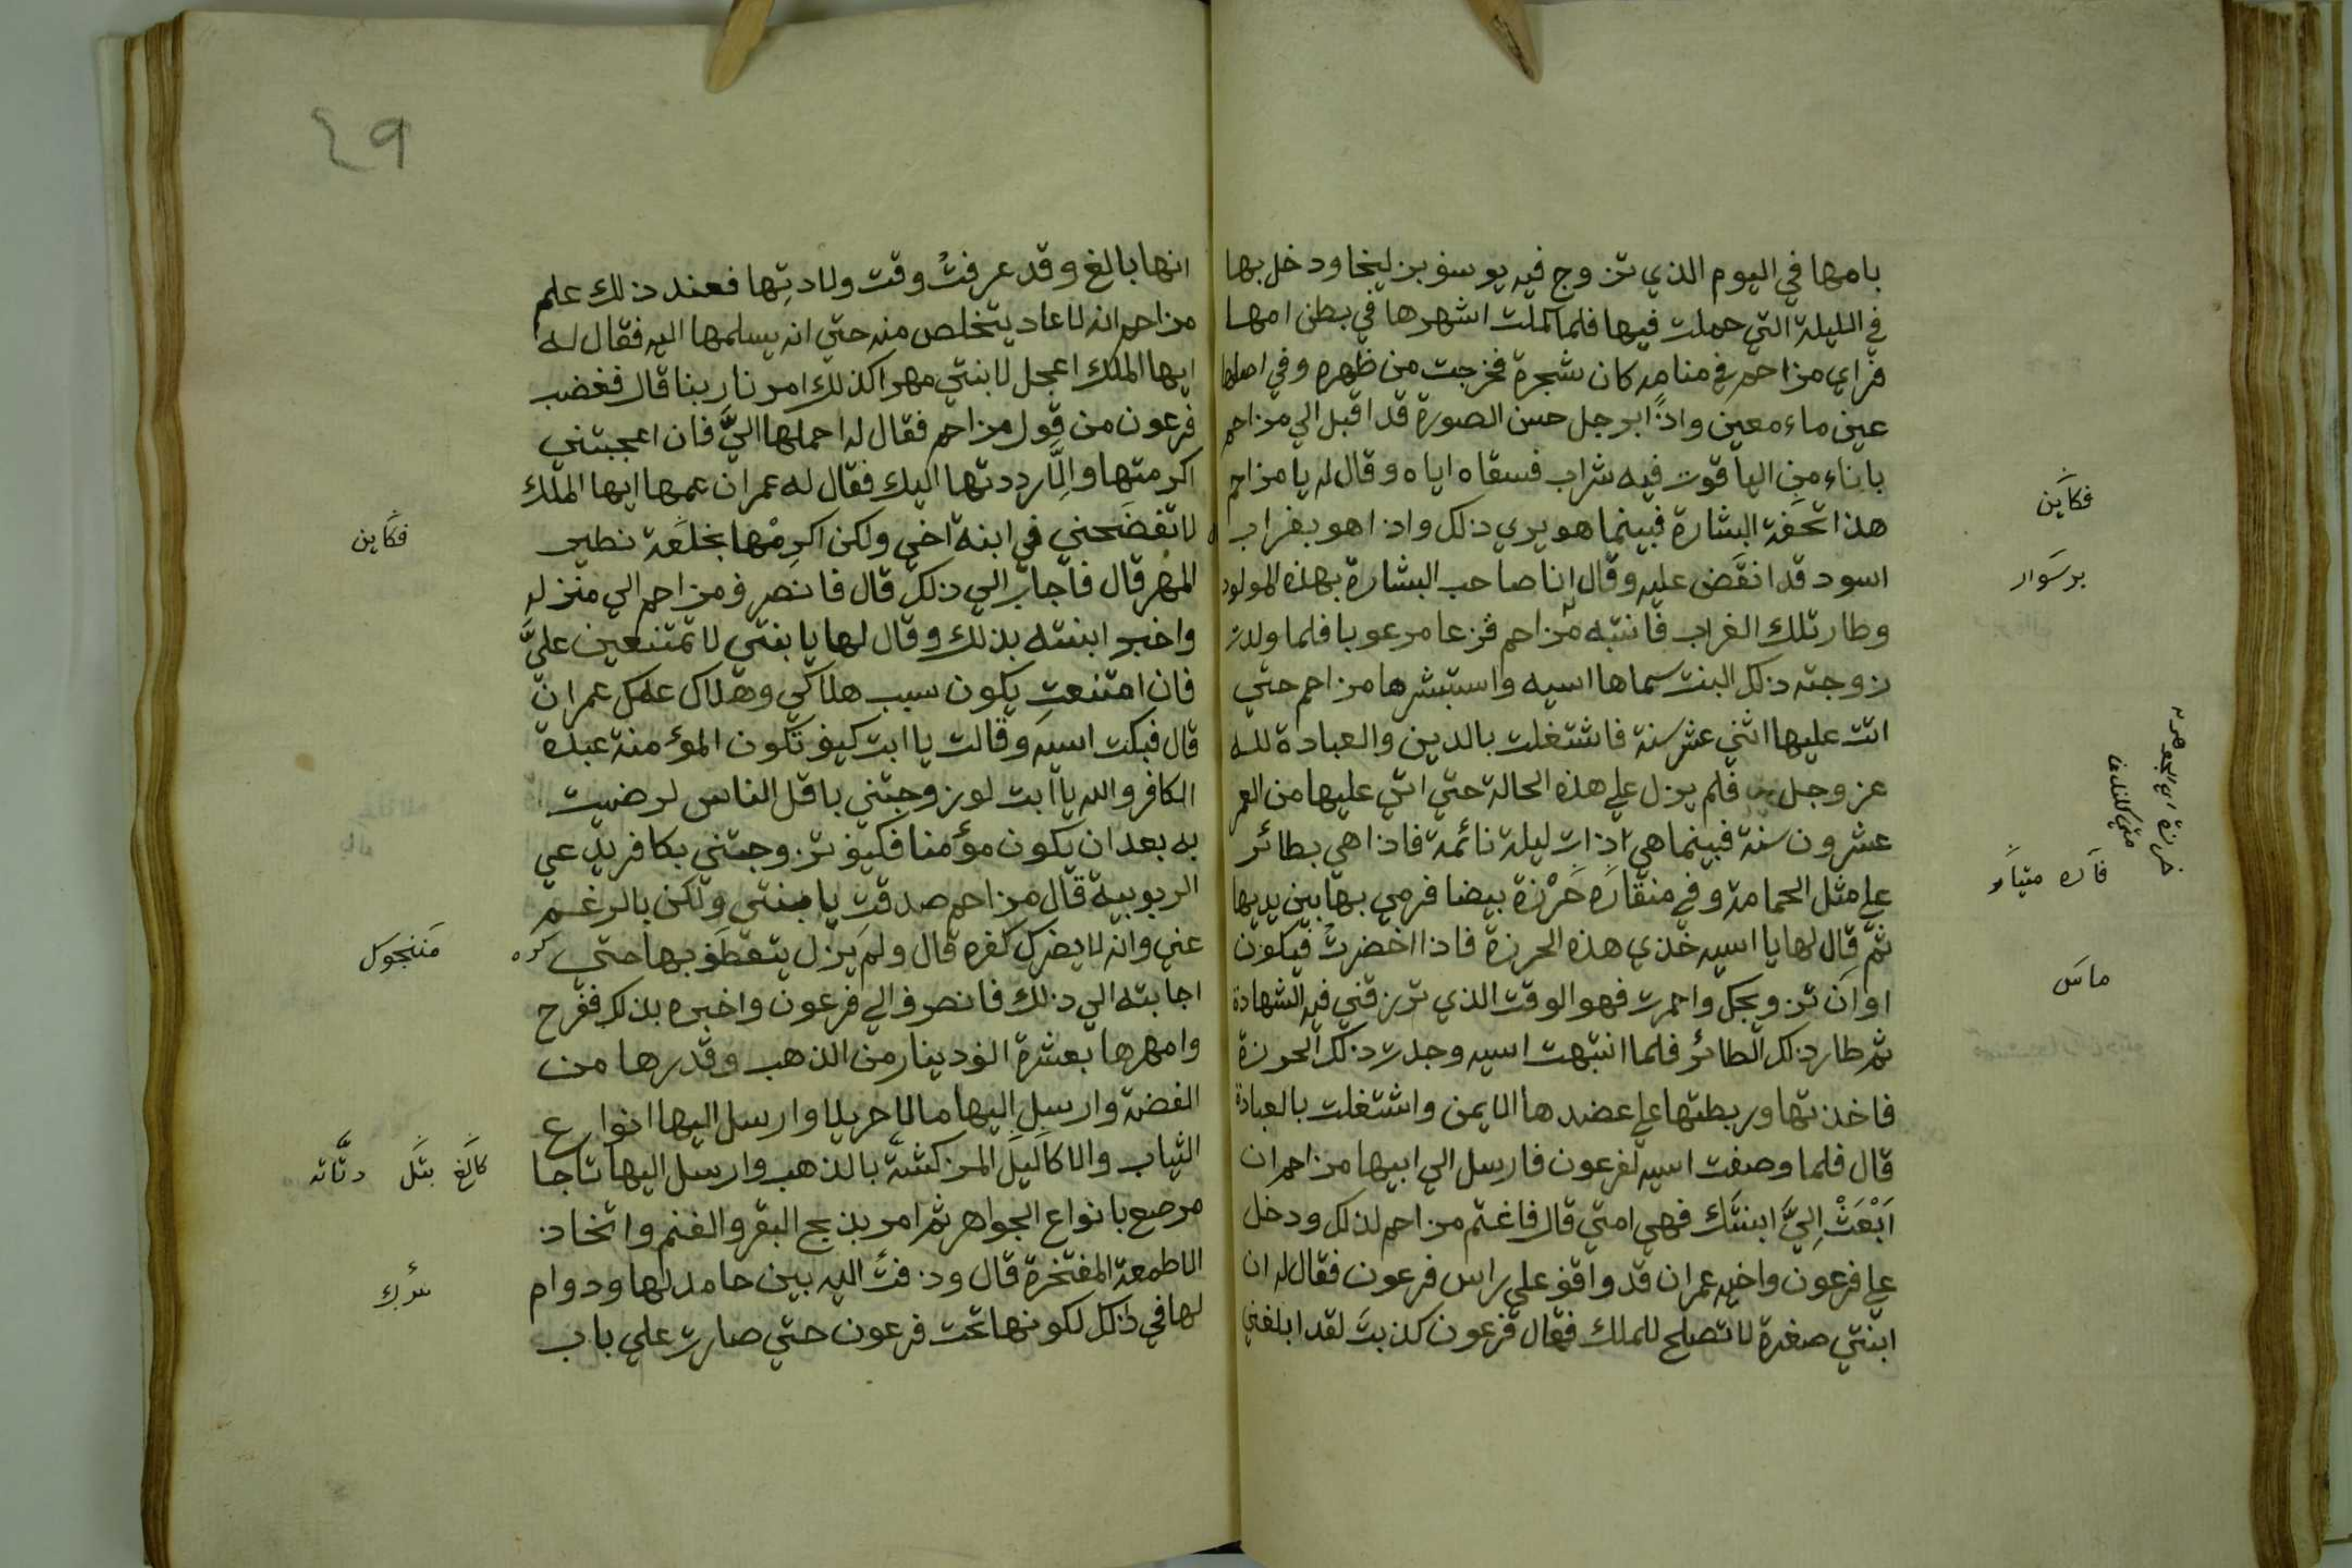 بامها في اليوم الذي تزوج فيه يوسف بزليخا ودخل بها
في الليلة التي حملت فيها فلما كملت اشهرها في بطن امها
فراي مزاحم في منامه كان شجرة فخرجت من ظهره وفي اصلها
عين ماء معين واذا برجل حسن الصورة قد اقبل الي مزاحم
باناء من الياقوت فيه شراب فسقاه اياه وقال له يا مزاحم
هذا تحفة البشارة فبينما هو يري ذلك واذا هو بغراب
اسود قد انقض عليه وقال انا صاحب البشارة بهذه المولود
وطار تلك الغراب فانتبه مزاحم فزعا مرعوبا فلما ولدت
زوجته ذلك البنت سماها اسيه واستبشرها مزاحم حتي
اتت عليها اثني عشر سنة فاشتغلت بالدين والعبادة لله
عز وجل فلم يزل علي هذه الحالة حتي اتي عليها من العمر
عشرون سنة فبينما هي اذات ليلة نائمة فاذا هي بطائر
علي مثل الحمامة وفي منقاره خَرْزة بيضا فرمي بها بين يديها
ثم قال لها يا اسيه خذي هذه الحرزة فاذا اخضرت فيكون
اوان تزويجك واحمرت فهو الوقت الذي ترزقني فيه الشهادة
ثم طار ذلك الطائر فلما انتبهت اسيه وجدت ذلك الحرزة
فاخذتها وربطتها علي عضدها الايمن واشتغلت بالعبادة
قال فلما وصفت اسيه لفرعون فارسل الي ابيها مزاحم ان
اَبْعَثْ اِليَّ ابنتك فهي امتي قال فاغتم مزاحم لذلك ودخل
علي فرعون واخيه عمران قد واقف علي راس فرعون فقال له ان
ابنتي صغرة لا تصلح للملك فقال فرعون كذبتَ لقد ابلغني
فكاين
برسَوار
خرزة اي الجوهرة
فاره متياو
ماس
٤٩
انها بالغ وقد عرفتُ وقت ولادتِها فعند ذلك علم
مزاحم انه لا عاد يتخلص منه حتي انه يسلمها اليه فقال له
ايها الملك اعجل لابنتي مهرا كذلك امرنا ربنا قال فغضب
فرعون من قول مزاحم فقال له احملها اليَّ فان اعجبتني
اكرمتها واِلَّا رددتها اليك فقال له عمران عمها ايها الملك
لا تفضَحني في ابنة اخي ولكن اكرِمْها بخلعَة نطير
المهر قال فاجاب الي ذلك قال فانصرف مزاحم الي منزله
واخبر ابنته بذلك وقال لها يا بنتي لا تمتنعين عليَّ
فان امتنعتِ يكون سبب هلاكي وهلاك عمك عمران
قال فبكت اسيه وقالت يا ابت كيف تكون المؤمنة عبدة
الكافر والله يا ابت لو زوجتني باقل الناس لرضيت
به بعد ان يكون مؤمنا فكيف تزوجتني بكافر يدعي
الربوبية قال مزاحم صدقت يا بنتي ولكن بالرغم
عني وانه لا يضرك كفره قال ولم يزل يتعطف بها حتي كره
اجابته الي ذلك فانصرف الي فرعون واخبره بذلك ففرح
وامهرها بعشرة الف دينار من الذهب وقدرها من
الفضة وارسل اليها مالا جزيلا وارسل اليها انواع
الثياب والاكاليل المزركشة بالذهب وارسل اليها تاجا
مرصع بانواع الجواهر ثم امر بذبح البقر والغنم واتخاذ
الاطمعة المفتخرة قال وزفت اليه بين حامد لها ودوام
لها في ذلك لكونها تحت فرعون حتي صارت علي باب
فكاين
مننجوكل
كالغ بتَل دتَّاته